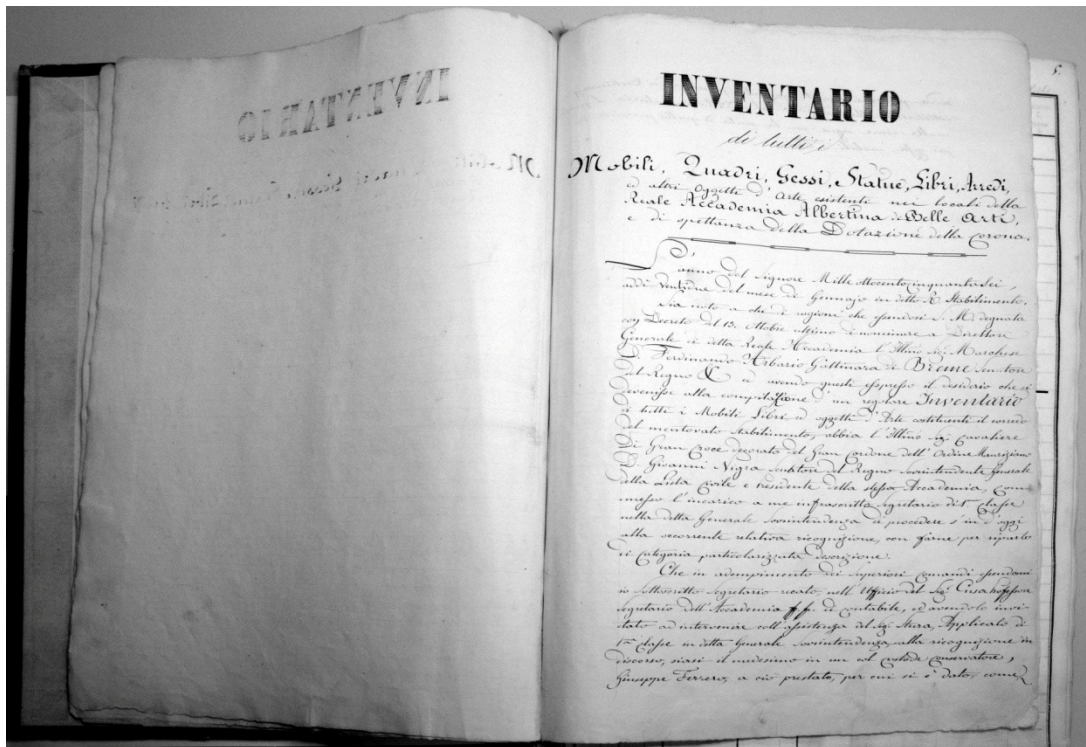 INVENTARIO
di tutti i
Mobili, Quadri, Gessi, Statue, Libri, Arredi,
ed altri oggetti d'Arte esistenti nei locali della
Reale Accademia Albertina di Belle Arti,
e di spettanza della Dotazione della Corona.
L'
anno del Signore Mille ottocento cinquanta sei,
addì ventidue del mese di Gennajo in detto R. Stabilimento.
Sia noto a chi di ragione che essendosi S. M. degnata
con Decreto del 13. Ottobre ultimo di nominare a Direttore
Generale di detta Reale Accademia l'Illmo Sig. Marchese
D. Ferdinando Arborio Gattinara di Breme Senatore
del Regno & ed avendo questi espresso il desiderio che si
devenisse alla compilazione d'un regolare Inventario
di tutti i Mobili Libri ed oggetti d'Arte costituenti il corredo
del mentovato stabilimento, abbia l'Illmo Sig. Cavaliere
di Gran Croce decorato del Gran Cordone dell'Ordine Mauriziano
D. Giovanni Nigra Senatore del Regno Sovrintendente Generale
della Lista Civile e Presidente della stessa Accademia, com=
messo l'incarico a me infrascritto Segretario di 1a Classe
nella detta Generale Sovrintendenza di procedere sin d'oggi
alla occorrente relativa ricognizione, con farne per riparto
di Categoria particolarizzata descrizione.
Che in adempimento dei Superiori Comandi essendomi
io sottoscritto Segretario recato, nell'Ufficio del Sig. Cusa Professore
Segretario dell'Accademia ff. di Contabile, ed avendolo invi=
tato ad intervenire coll'assistenza del Sig. Applicato di
1a Classe in detta Generale Sovrintendenza, alla ricognizione in
discorso, siasi il medesimo in un col Custode Conservatore,
Giuseppe Ferrero, a ciò prestato, per cui si è dato, come